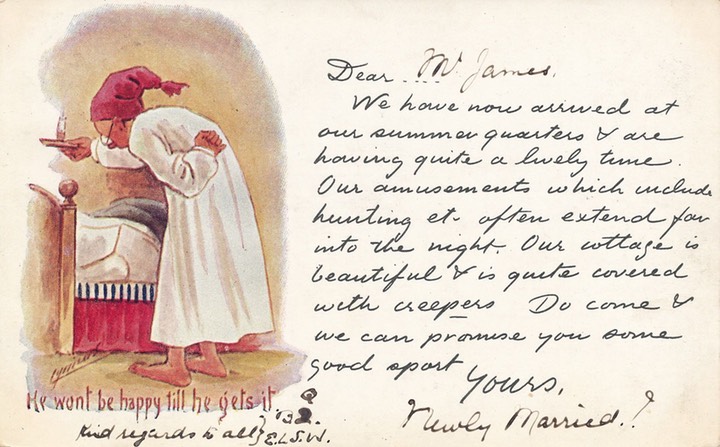 Dear .... Mr James.
We have now arrived at
our summer quarters & are
having quite a lively time.
Our amusements which include
hunting et. often extend far
into the night. Our cottage is
beautiful & is quite covered
with creepers Do come &
we can promise you some
good sport
Yours,
Newly Married.?
He wont be happy till he gets it
Kind regards to all} E.L.S.W.